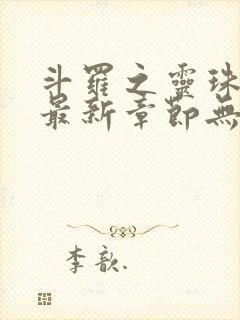 斗羅之靈珠
最新章節無
李歆.